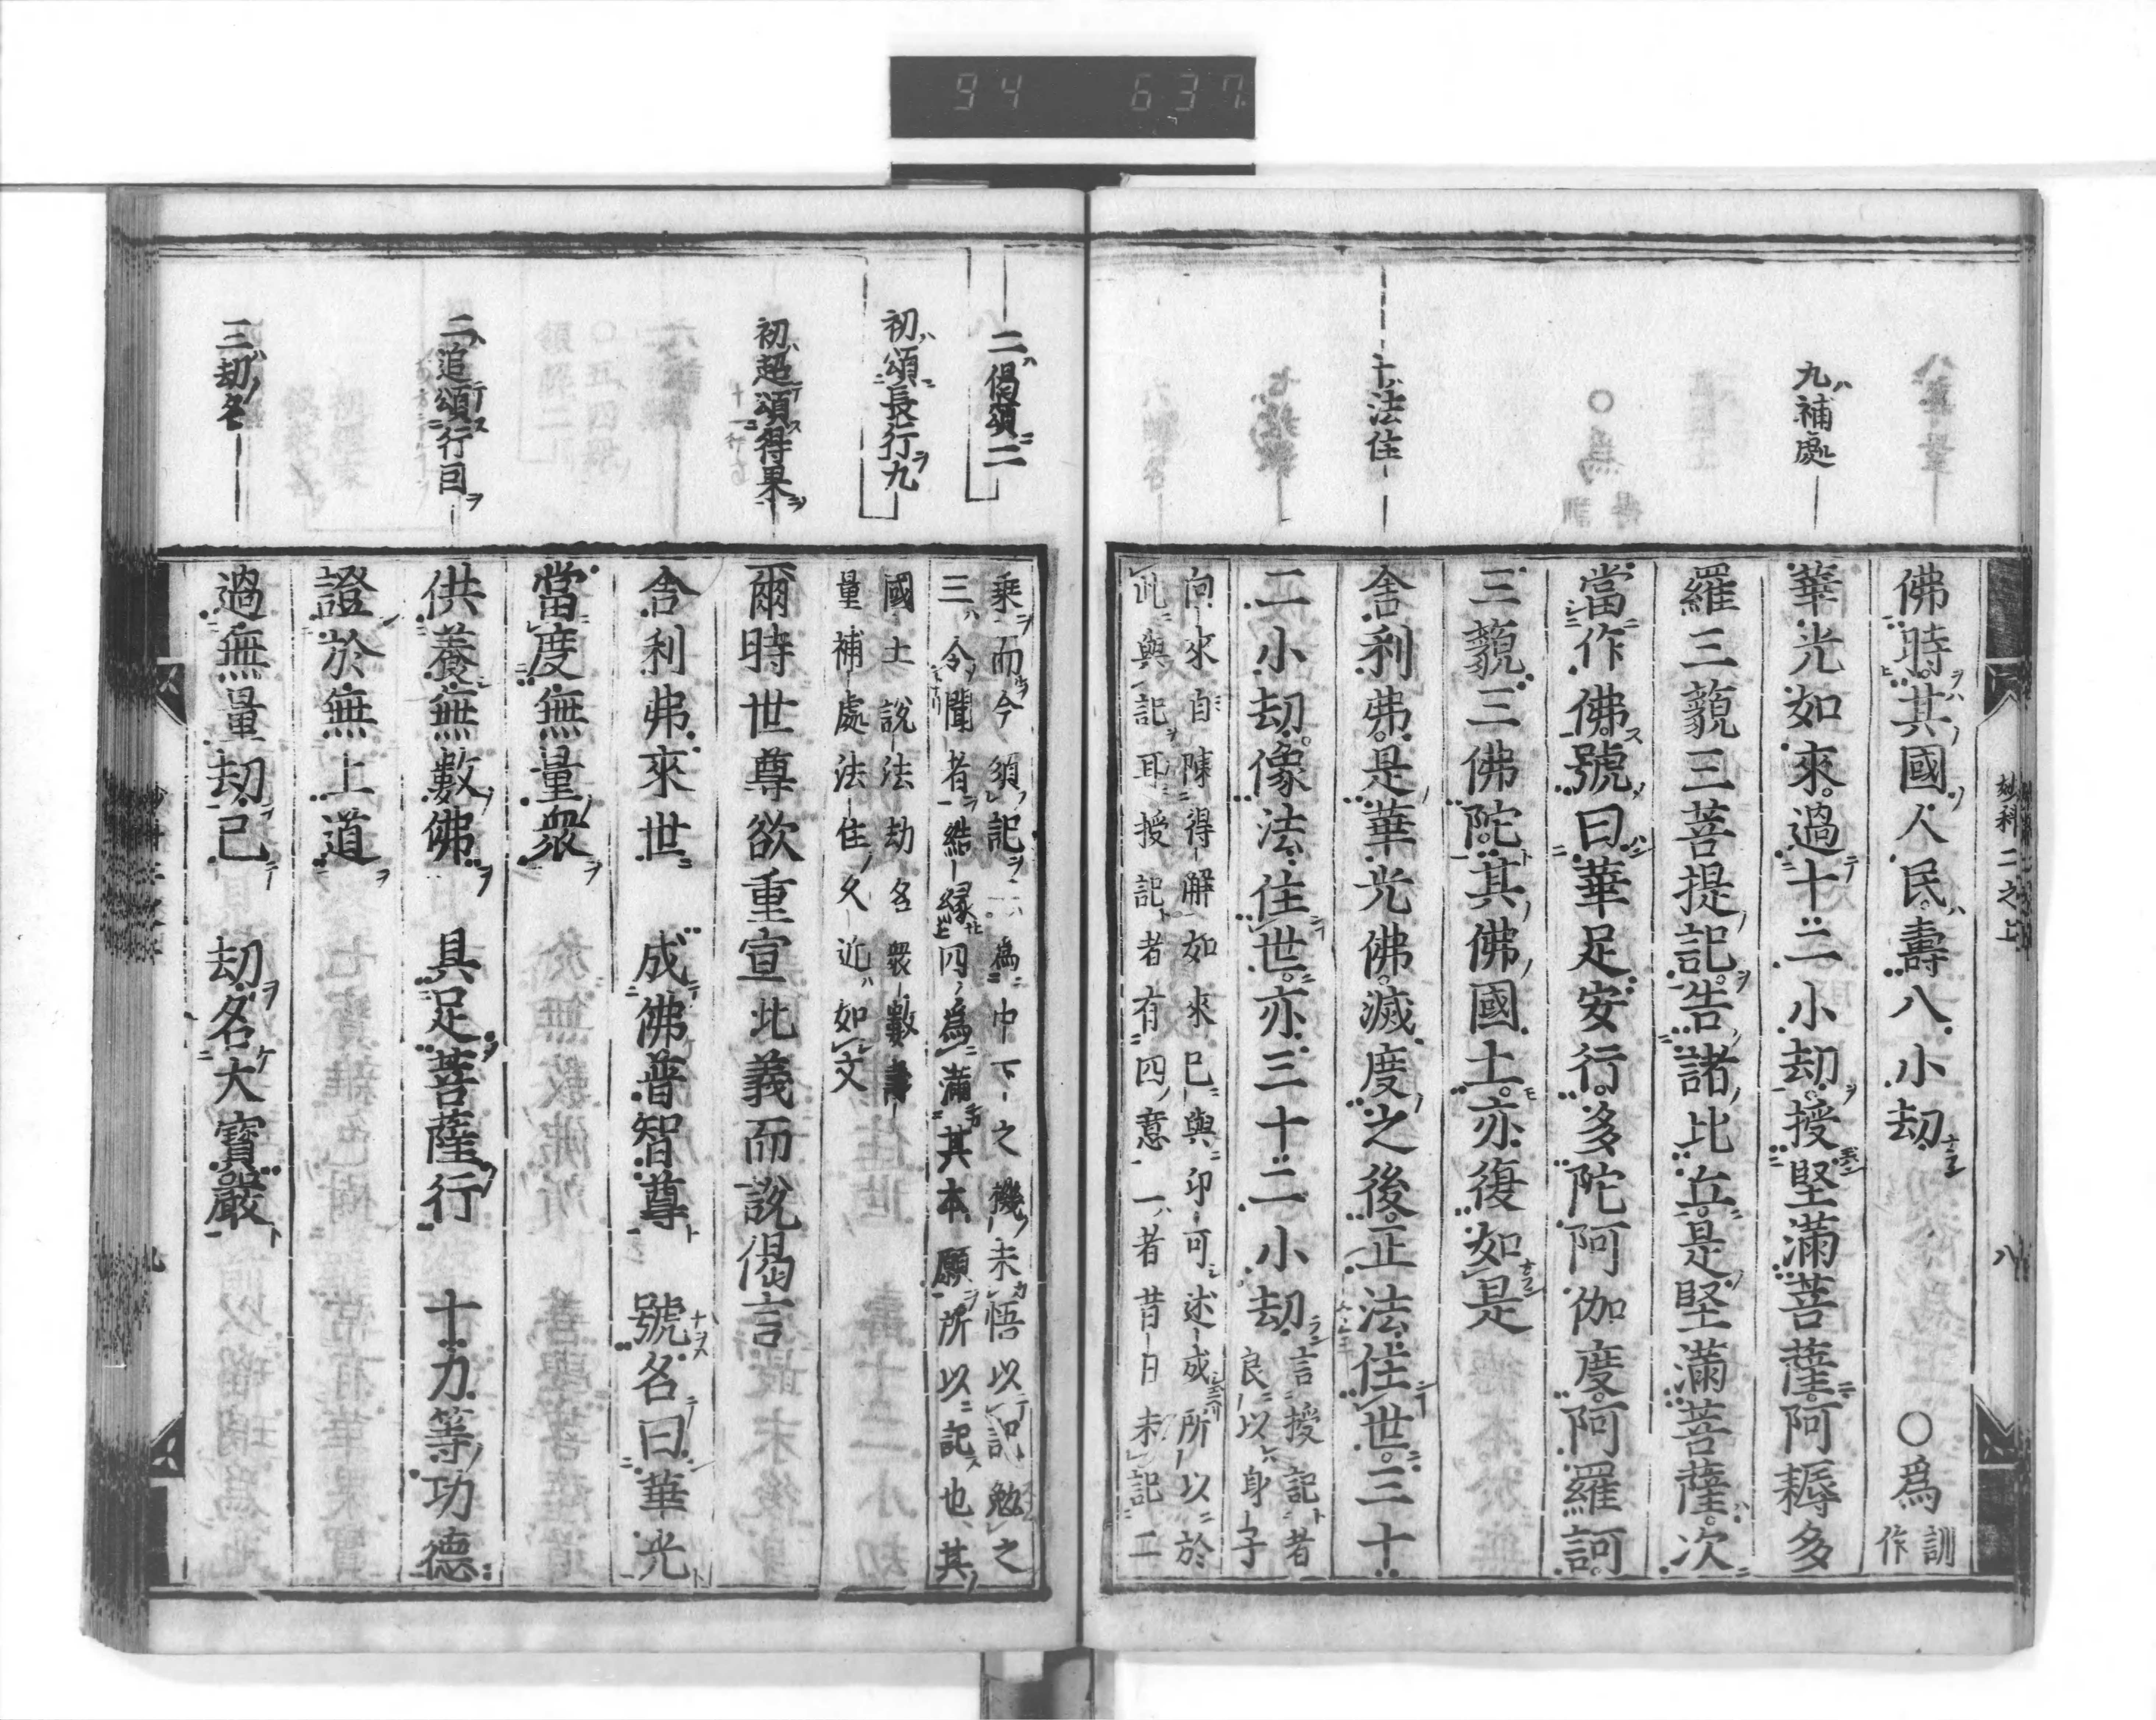 94 637
妙科二之上
八
佛時其國人民壽八小劫 ○爲訓作
九補處
華光如來過十二小劫授堅滿菩薩阿耨多
羅三藐三菩提記告諸比丘是堅滿菩薩次
當作佛號曰華足安行多陀阿伽度阿羅訶
三藐三佛陀其佛國土亦復如是
十法住
舍利弗是華光佛滅度之後正法住世三十
二小劫像法住世亦三十二小劫言授記者
良以身子
向來自陳得解如來已與印可述成所以於
此與記耳授記者有四意一者昔日未記二
二偈頌二
乘而今須記二爲中下之機未悟以記勉之
三令聞者結緣四爲滿其本願所以記也其
初頌長行九
國土說法劫名衆數壽
量補處法住久近如文
初超頌得果
爾時世尊欲重宣此義而說偈言
舍利弗來世 成佛普智尊 號名曰華光
當度無量衆
二追頌行因
供養無數佛 具足菩薩行 十力等功德
證於無上道
三劫名
過無量劫已 劫名大寶嚴